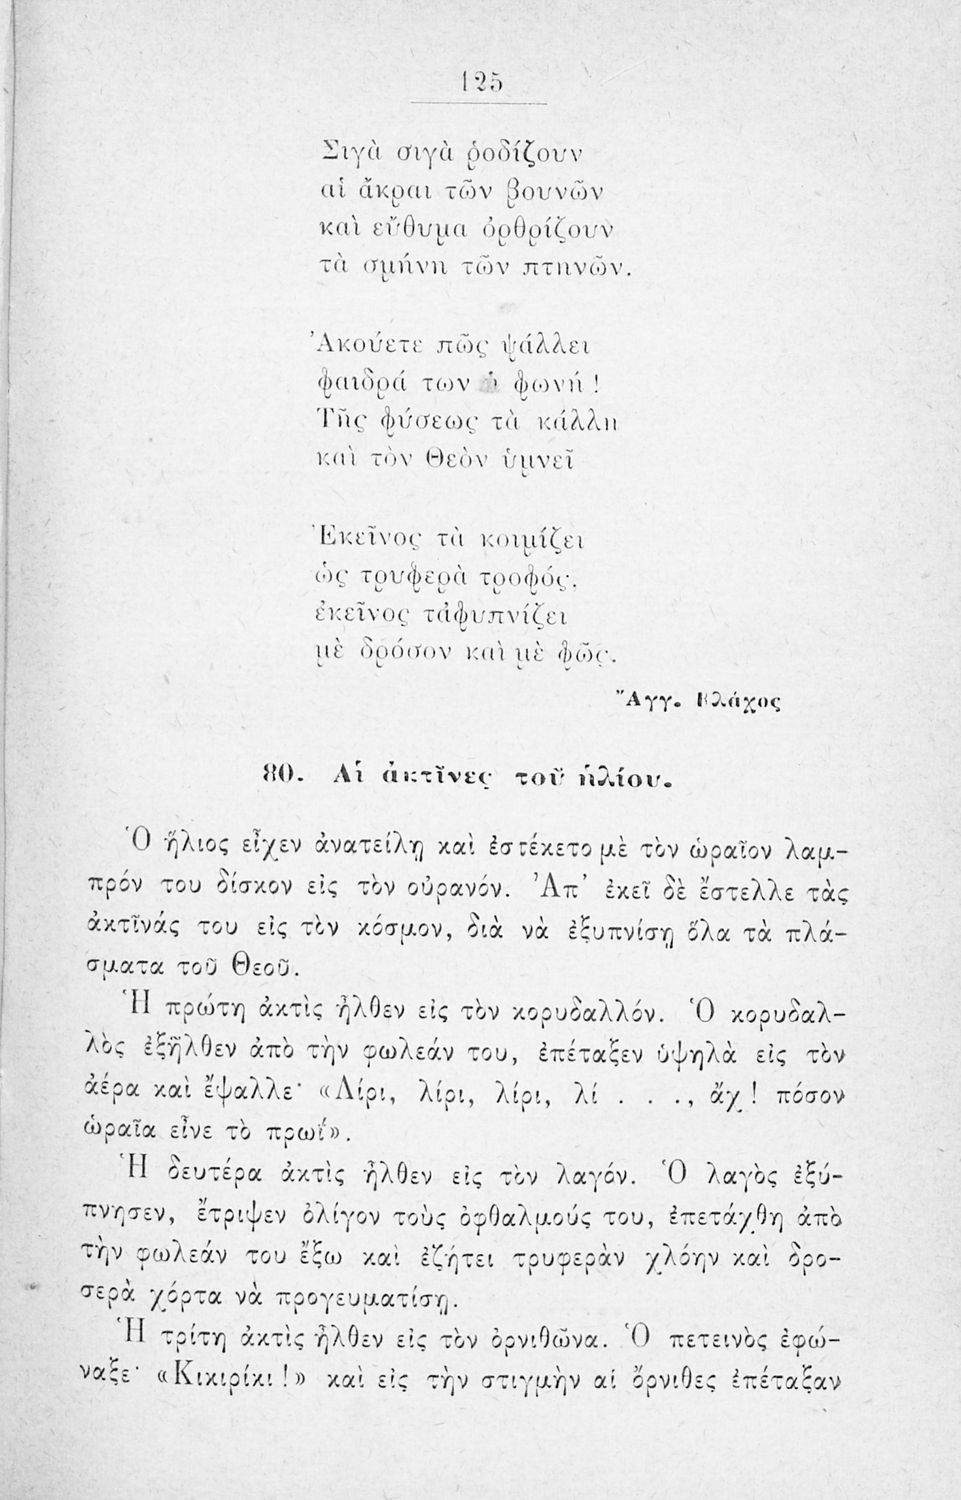 125
Σιγὰ σιγὰ ῥοδίζουν
αἱ ἄκραι τῶν βουνῶν
καὶ εὔθυμα ὀρθρίζουν
τὰ σμήνη τῶν πτηνῶν.
Ἀκούετε πῶς ψάλλει
φαιδρά των ἡ φωνή !
Τῆς φύσεως τὰ κάλλη
καὶ τὸν Θεὸν ὑμνεῖ
Ἐκεῖνος τὰ κοιμίζει
ὡς τρυφερὰ τροφός,
ἐκεῖνος τἀφυπνίζει
μὲ δρόσον καὶ μὲ φῶς.
Ἄγγ. Βλάχος
80. Αἱ ἀκτῖνες τοῦ ἡλίου.
Ὁ ἥλιος εἶχεν ἀνατείλῃ καὶ ἐστέκετο μὲ τὸν ὡραῖον λαμ-
πρόν του δίσκον εἰς τὸν οὐρανόν. Ἀπ’ ἐκεῖ δὲ ἔστελλε τὰς
ἀκτῖνάς του εἰς τὸν κόσμον, διὰ νὰ ἐξυπνίσῃ ὅλα τὰ πλά-
σματα τοῦ Θεοῦ.
Ἡ πρώτη ἀκτὶς ἦλθεν εἰς τὸν κορυδαλλόν. Ὁ κορυδαλ-
λὸς ἐξῆλθεν ἀπὸ τὴν φωλεάν του, ἐπέταξεν ὑψηλὰ εἰς τὸν
ἀέρα καὶ ἔψαλλε· «Λίρι, λίρι, λίρι, λί . . ., ἄχ ! πόσον
ὡραῖα εἶνε τὸ πρωΐ».
Ἡ δευτέρα ἀκτὶς ἦλθεν εἰς τὸν λαγόν. Ὁ λαγὸς ἐξύ-
πνησεν, ἔτριψεν ὀλίγον τοὺς ὀφθαλμούς του, ἐπετάχθη ἀπὸ
τὴν φωλεάν του ἔξω καὶ ἐζήτει τρυφερὰν χλόην καὶ δρο-
σερὰ χόρτα νὰ προγευματίσῃ.
Ἡ τρίτη ἀκτὶς ἦλθεν εἰς τὸν ὀρνιθῶνα. Ὁ πετεινὸς ἐφώ-
ναξε· «Κικιρίκι !» καὶ εἰς τὴν στιγμὴν αἱ ὄρνιθες ἐπέταξαν